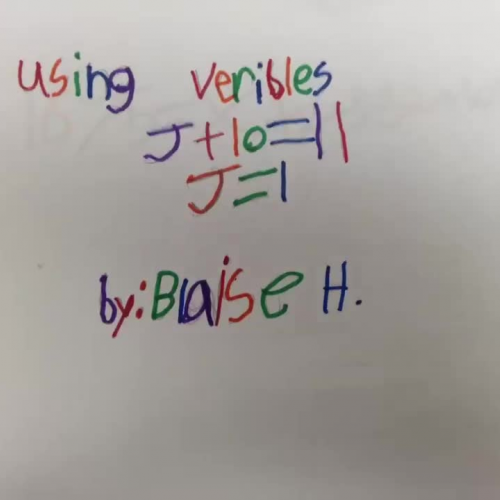 using veribles
J+10=11
J=1
by:Blaise H.